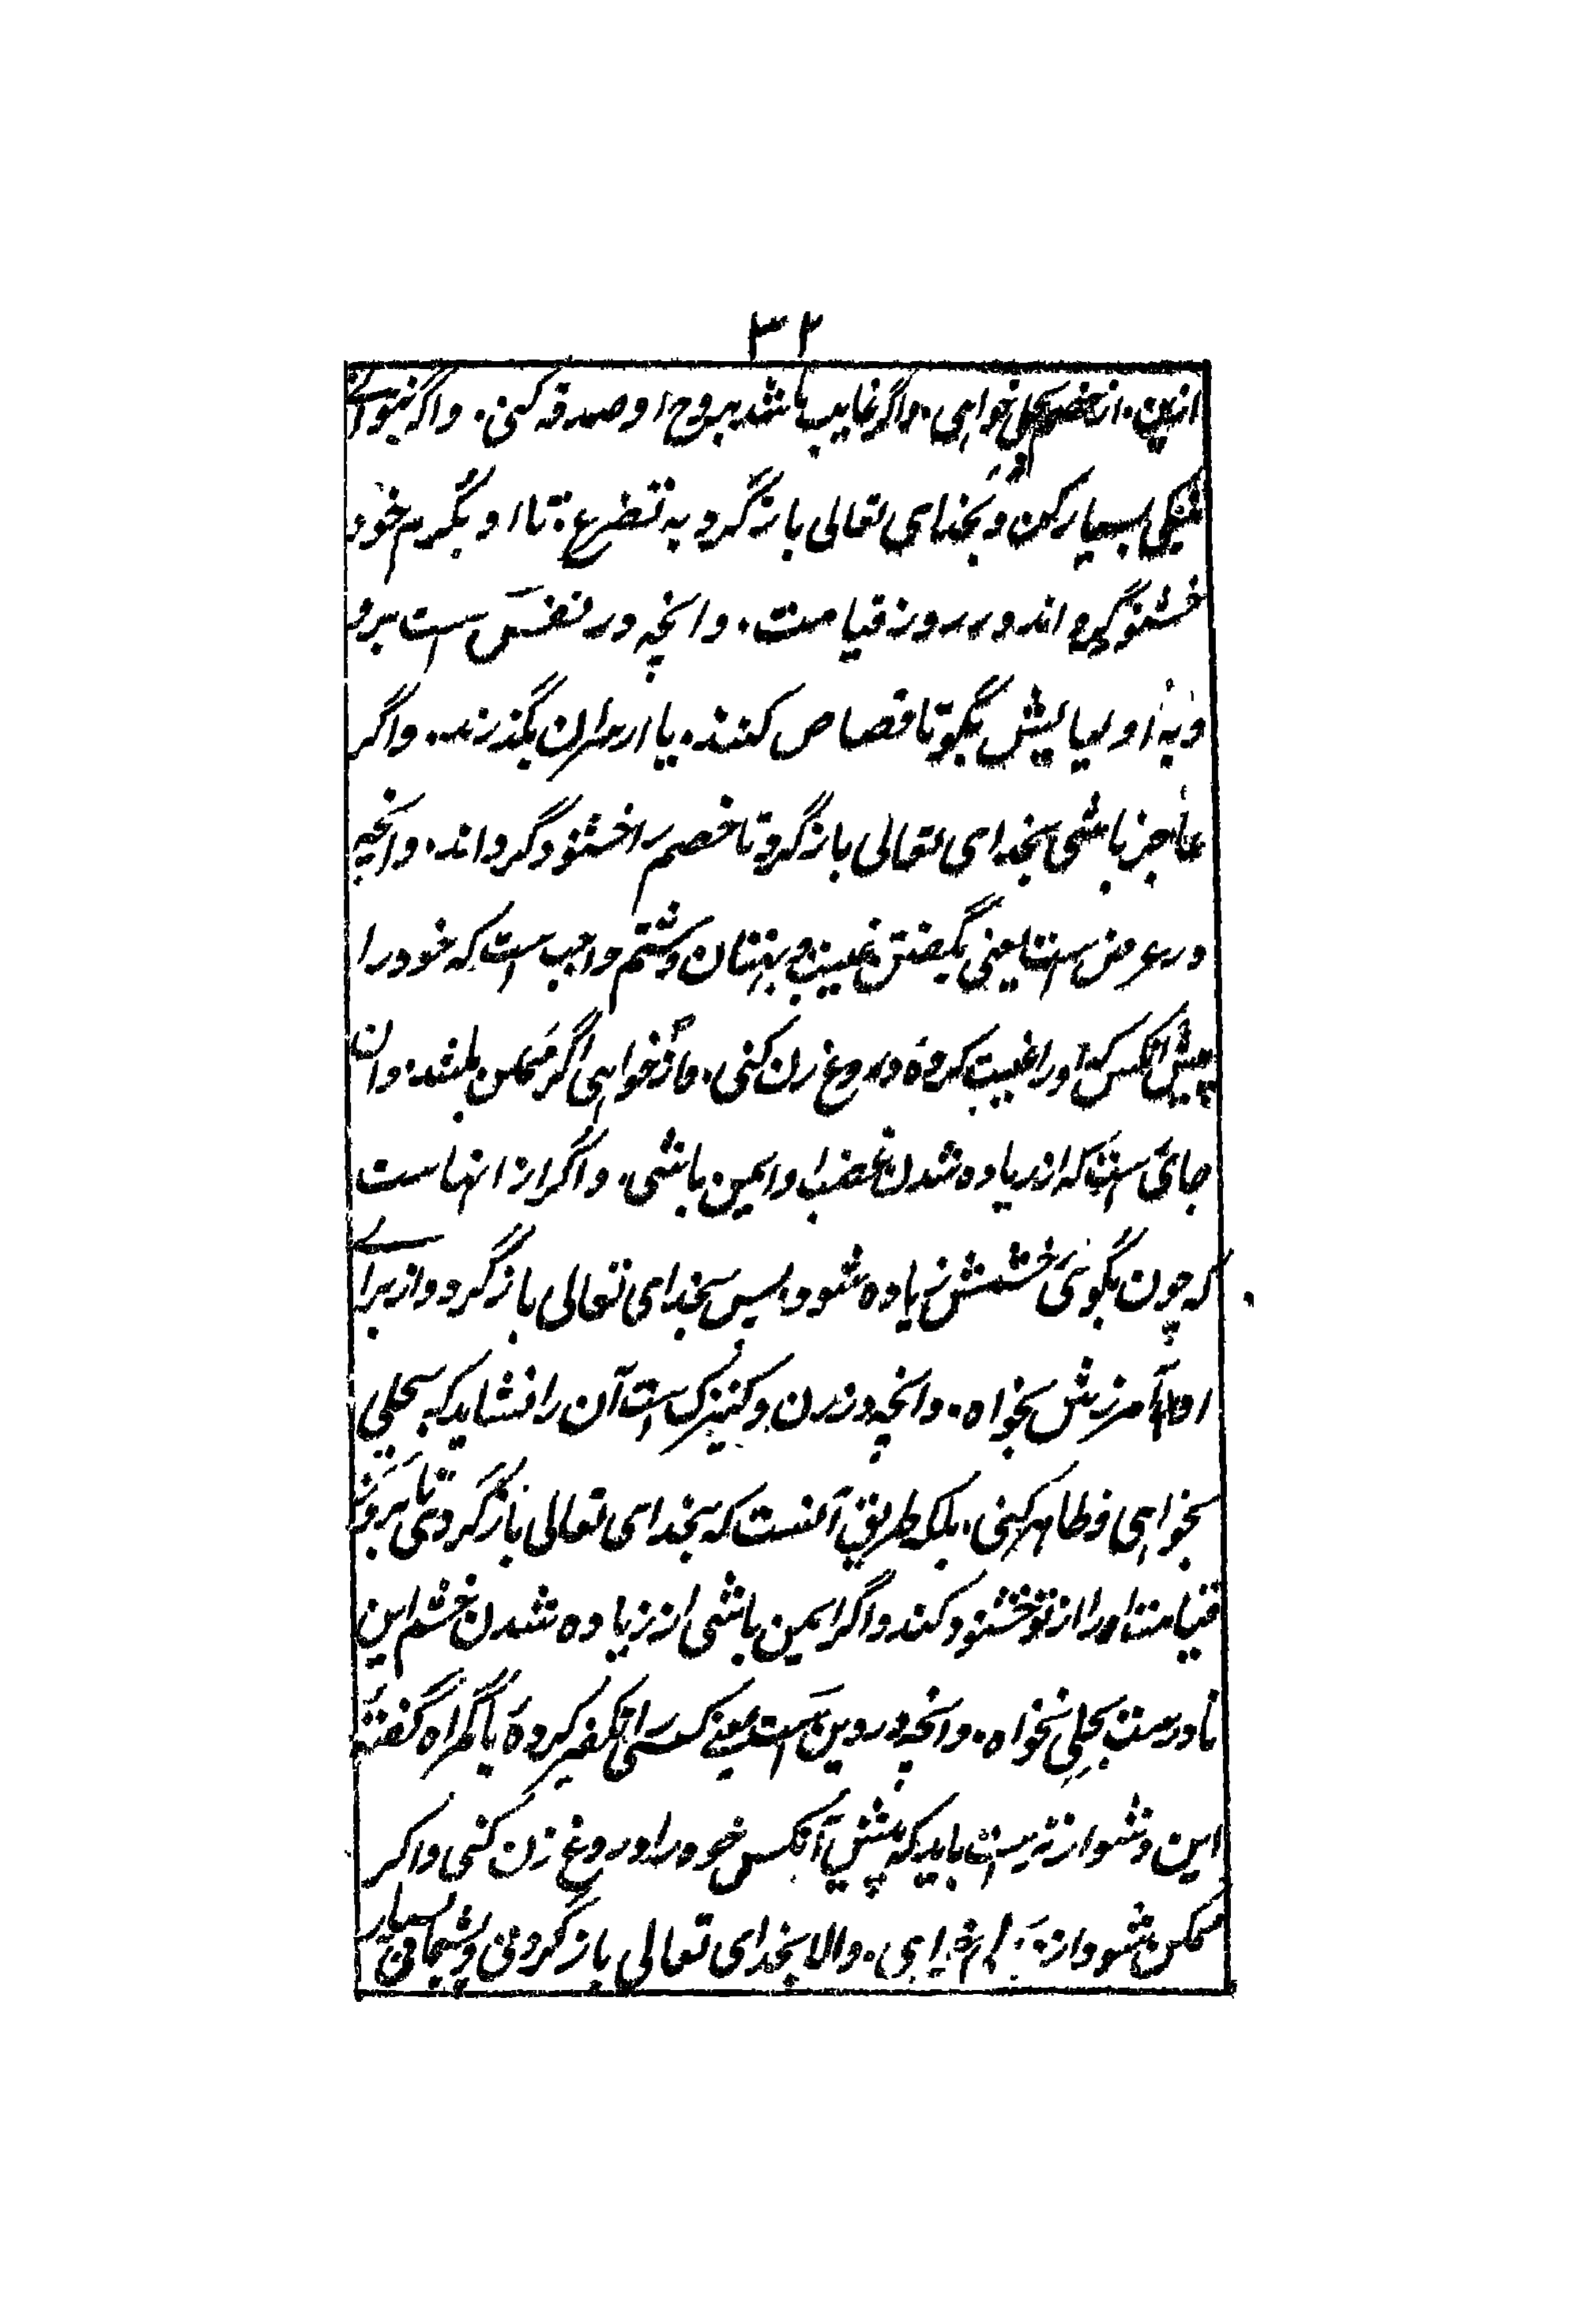 ۳۲
ازین. از خصم بحلی خواهی. واگر غایب باشد بروح او صدقه کنی. واگر نتوانے
نیکی بسیار کن و بخدای تعالی بازگرد به تضرع: تا او بکرم خود
خشنود گرداند در روز قیامت. وانچه در نفس است برو
و به اولیایش بگو تا قصاص کنند. یا از سران بگذرند. واگر
عاجز باشی بخدای تعالی بازگرد تا خصم را خشنود گرداند. وانچه
در عرض است یعنی بگفتن غیبت و بهتان و شتم واجب است که خود را
پیش انکس که اورا غیبت کردهٔ دروغ زن کنی. خواهی اگر ممکن باشد. وان
جائی ست که از زیاده شدن غضب او ایمن باشی. واگر از انهاست
که چون بگوئی خشمش زیاده شود پس بخدای تعالی بازگرد و از براے
او آمرزش بخواه. وانچه در زن و کنیزک است آن را نشاید که بحلی
بخواهی و ظاهر کنی. بلکه طریق آنست که بخدای تعالی بازگردی تا بروز
قیامت او را از تو خشنود کند واگر ایمن باشی از زیاده شدن خشم این
نادرست بحلی نخواه. وانچه در دین است یعنے کسی را تکفیر کردهٔ یا گمراه گفتهٔ
این دشوارتر ست باید که پیش آنکس خود را دروغ زن کنی واکر
ممکن شود از خواهی. والا بخدای تعالی بازگردی و پشیمانی بسیار